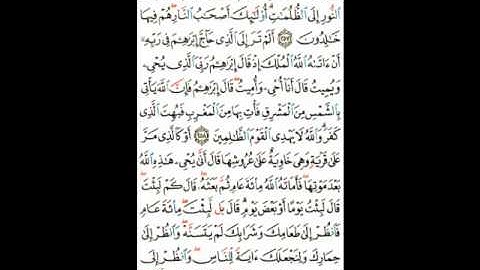 ٱلنُّورِ إِلَى ٱلظُّلُمَٰتِ أُو۟لَٰٓئِكَ أَصْحَٰبُ ٱلنَّارِ هُمْ فِيهَا
خَٰلِدُونَ ٢٥٧ أَلَمْ تَرَ إِلَى ٱلَّذِى حَآجَّ إِبْرَٰهِـۧمَ فِى رَبِّهِۦٓ
أَنْ ءَاتَىٰهُ ٱللَّهُ ٱلْمُلْكَ إِذْ قَالَ إِبْرَٰهِـۧمُ رَبِّىَ ٱلَّذِى يُحْىِۦ
وَيُمِيتُ قَالَ أَنَا۠ أُحْىِۦ وَأُمِيتُ قَالَ إِبْرَٰهِـۧمُ فَإِنَّ ٱللَّهَ يَأْتِى
بِٱلشَّمْسِ مِنَ ٱلْمَشْرِقِ فَأْتِ بِهَا مِنَ ٱلْمَغْرِبِ فَبُهِتَ ٱلَّذِى
كَفَرَ وَٱللَّهُ لَا يَهْدِى ٱلْقَوْمَ ٱلظَّٰلِمِينَ ٢٥٨ أَوْ كَٱلَّذِى مَرَّ
عَلَىٰ قَرْيَةٍ وَهِىَ خَاوِيَةٌ عَلَىٰ عُرُوشِهَا قَالَ أَنَّىٰ يُحْىِۦ هَٰذِهِ ٱللَّهُ
بَعْدَ مَوْتِهَا فَأَمَاتَهُ ٱللَّهُ مِا۟ئَةَ عَامٍ ثُمَّ بَعَثَهُۥ قَالَ كَمْ لَبِثْتَ
قَالَ لَبِثْتُ يَوْمًا أَوْ بَعْضَ يَوْمٍ قَالَ بَل لَّبِثْتَ مِا۟ئَةَ عَامٍ
فَٱنظُرْ إِلَىٰ طَعَامِكَ وَشَرَابِكَ لَمْ يَتَسَنَّهْ وَٱنظُرْ إِلَىٰ
حِمَارِكَ وَلِنَجْعَلَكَ ءَايَةً لِّلنَّاسِ وَٱنظُرْ إِلَى